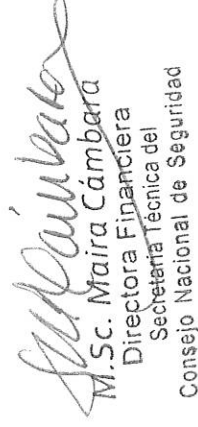 M.Sc. Maira Cámbara
Directora Financiera
Secretaría Técnica del
Consejo Nacional de Seguridad